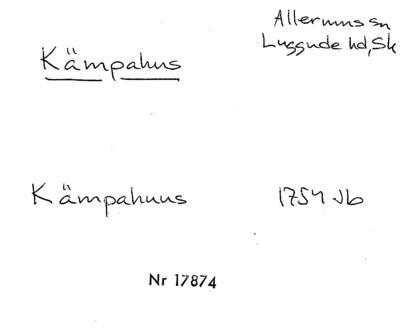 Kämpahus
Allerums sn
Luggude hd, Sk
Kämpahuus
1754 Jb
Nr 17874